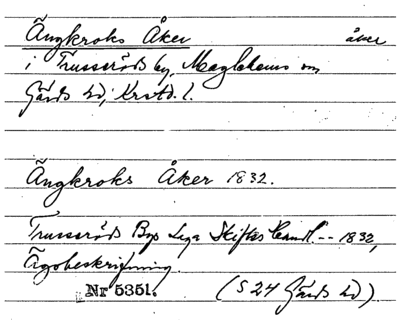 Ängkroks Åker åker
i Trussaröds by, Maglehems sn
Gärds hd, Krstd. l.
Ängkroks Åker 1832.
Trussaröds Bys Laga Skiftes Handl. -- 1832,
Ägobeskrifning.
Nr 5351. (S 24 Gärds hd)